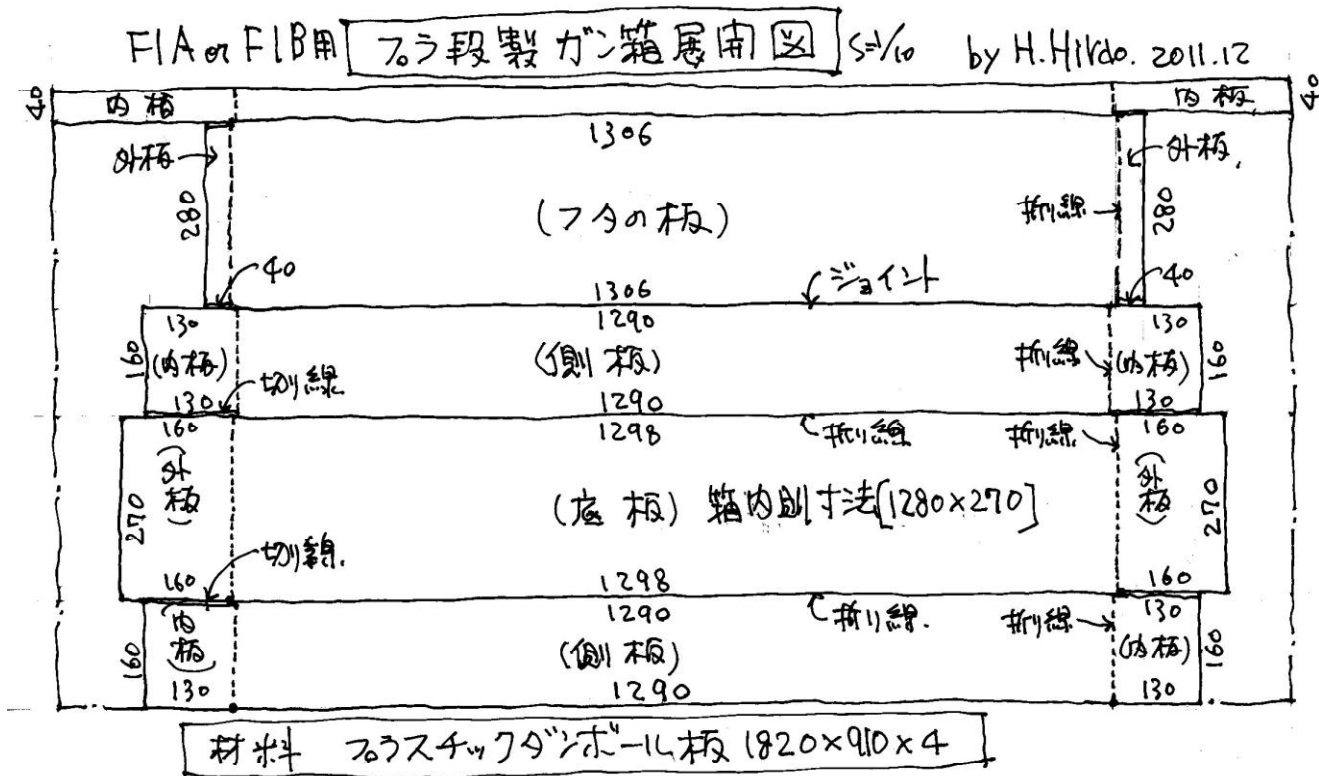 F1A or F1B用 プラ段製ガン箱展開図 S=1/10 by H.Hirao. 2011.12
40 内板 内板 40
1306
外板 外板
280 (フタの板) 折り線 280
40 1306 ジョイント 40
130 1290 130
160 (内板) (側板) 折り線 (内板) 160
130 切り線 1290 130
160 1298 折り線 折り線 160
270 (外板) (底板) 箱内側寸法[1280×270] (外板) 270
切り線
160 1298 160
1290 折り線 折り線 130
160 (内板) (側板) (内板) 160
130 1290 130
材料 プラスチックダンボール板 1820×910×4